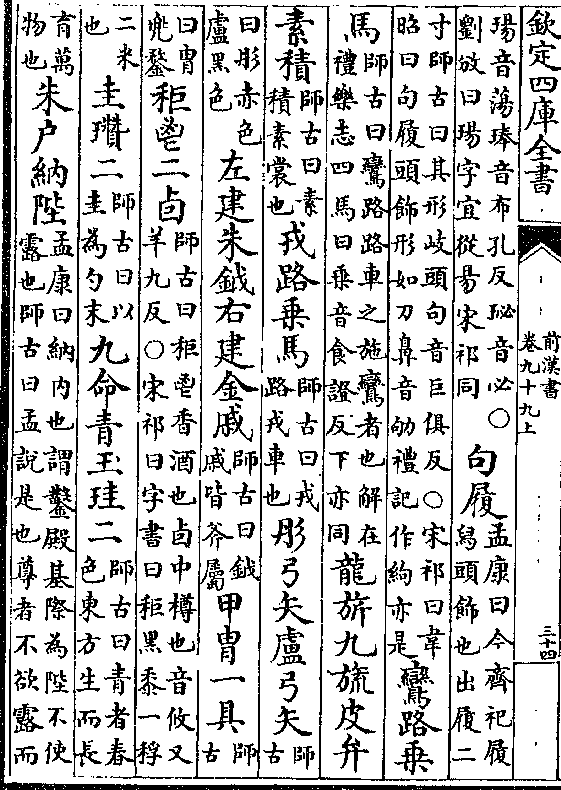 欽定四庫全書
前漢書
卷九十九上
三十四
瑒音蕩琫音布孔反珌音必○
劉攽曰瑒字宜從昜宋祁同
句履
孟康曰今齊祀履
舄頭飾也出履二
寸師古曰其形岐頭句音巨俱反○宋祁曰韋
昭曰句履頭飾形如刀鼻音劬禮記作絇亦是
鸞路乗
馬
師古曰鸞路路車之施鸞者也解在
禮樂志四馬曰乗音食證反下亦同
龍旂九旒皮弁
素積
師古曰素
積素裳也
戎路乗馬
師古曰戎
路戎車也
彤弓矢盧弓矢
師
古
曰彤赤色
盧黑色
左建朱鉞右建金戚
師古曰鉞
戚皆斧屬
甲冑一具
師
古
曰冑
兜鍪
秬鬯二卣
師古曰秬鬯香酒也卣中樽也音攸又
羊九反○宋祁曰字書曰秬黑黍一稃
二米
也
圭瓚二
師古曰以
圭為勺末
九命青玉珪二
師古曰青者春
色東方生而長
育萬
物也
朱户納陛
孟康曰納内也謂鑿殿基際為陛不使
露也師古曰孟說是也尊者不欲露而